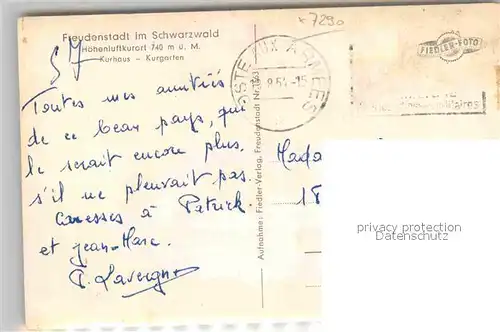 x 7290
Freudenstadt im Schwarzwald
Höhenluftkurort 740 m ü. M.
Kurhaus - Kurgarten
57
FIEDLER-FOTO
POSTE AUX ARMEES
Toutes mes amitiés
de ce beau pays, qui
le serait encore plus,
s'il ne pleuvait pas.
Caresses à Patrick
et Jean-Marc.
P. Lavergne
Aufnahme: Fiedler-Verlag, Freudenstadt Nr.
Mada
18
privacy protection
Datenschutz